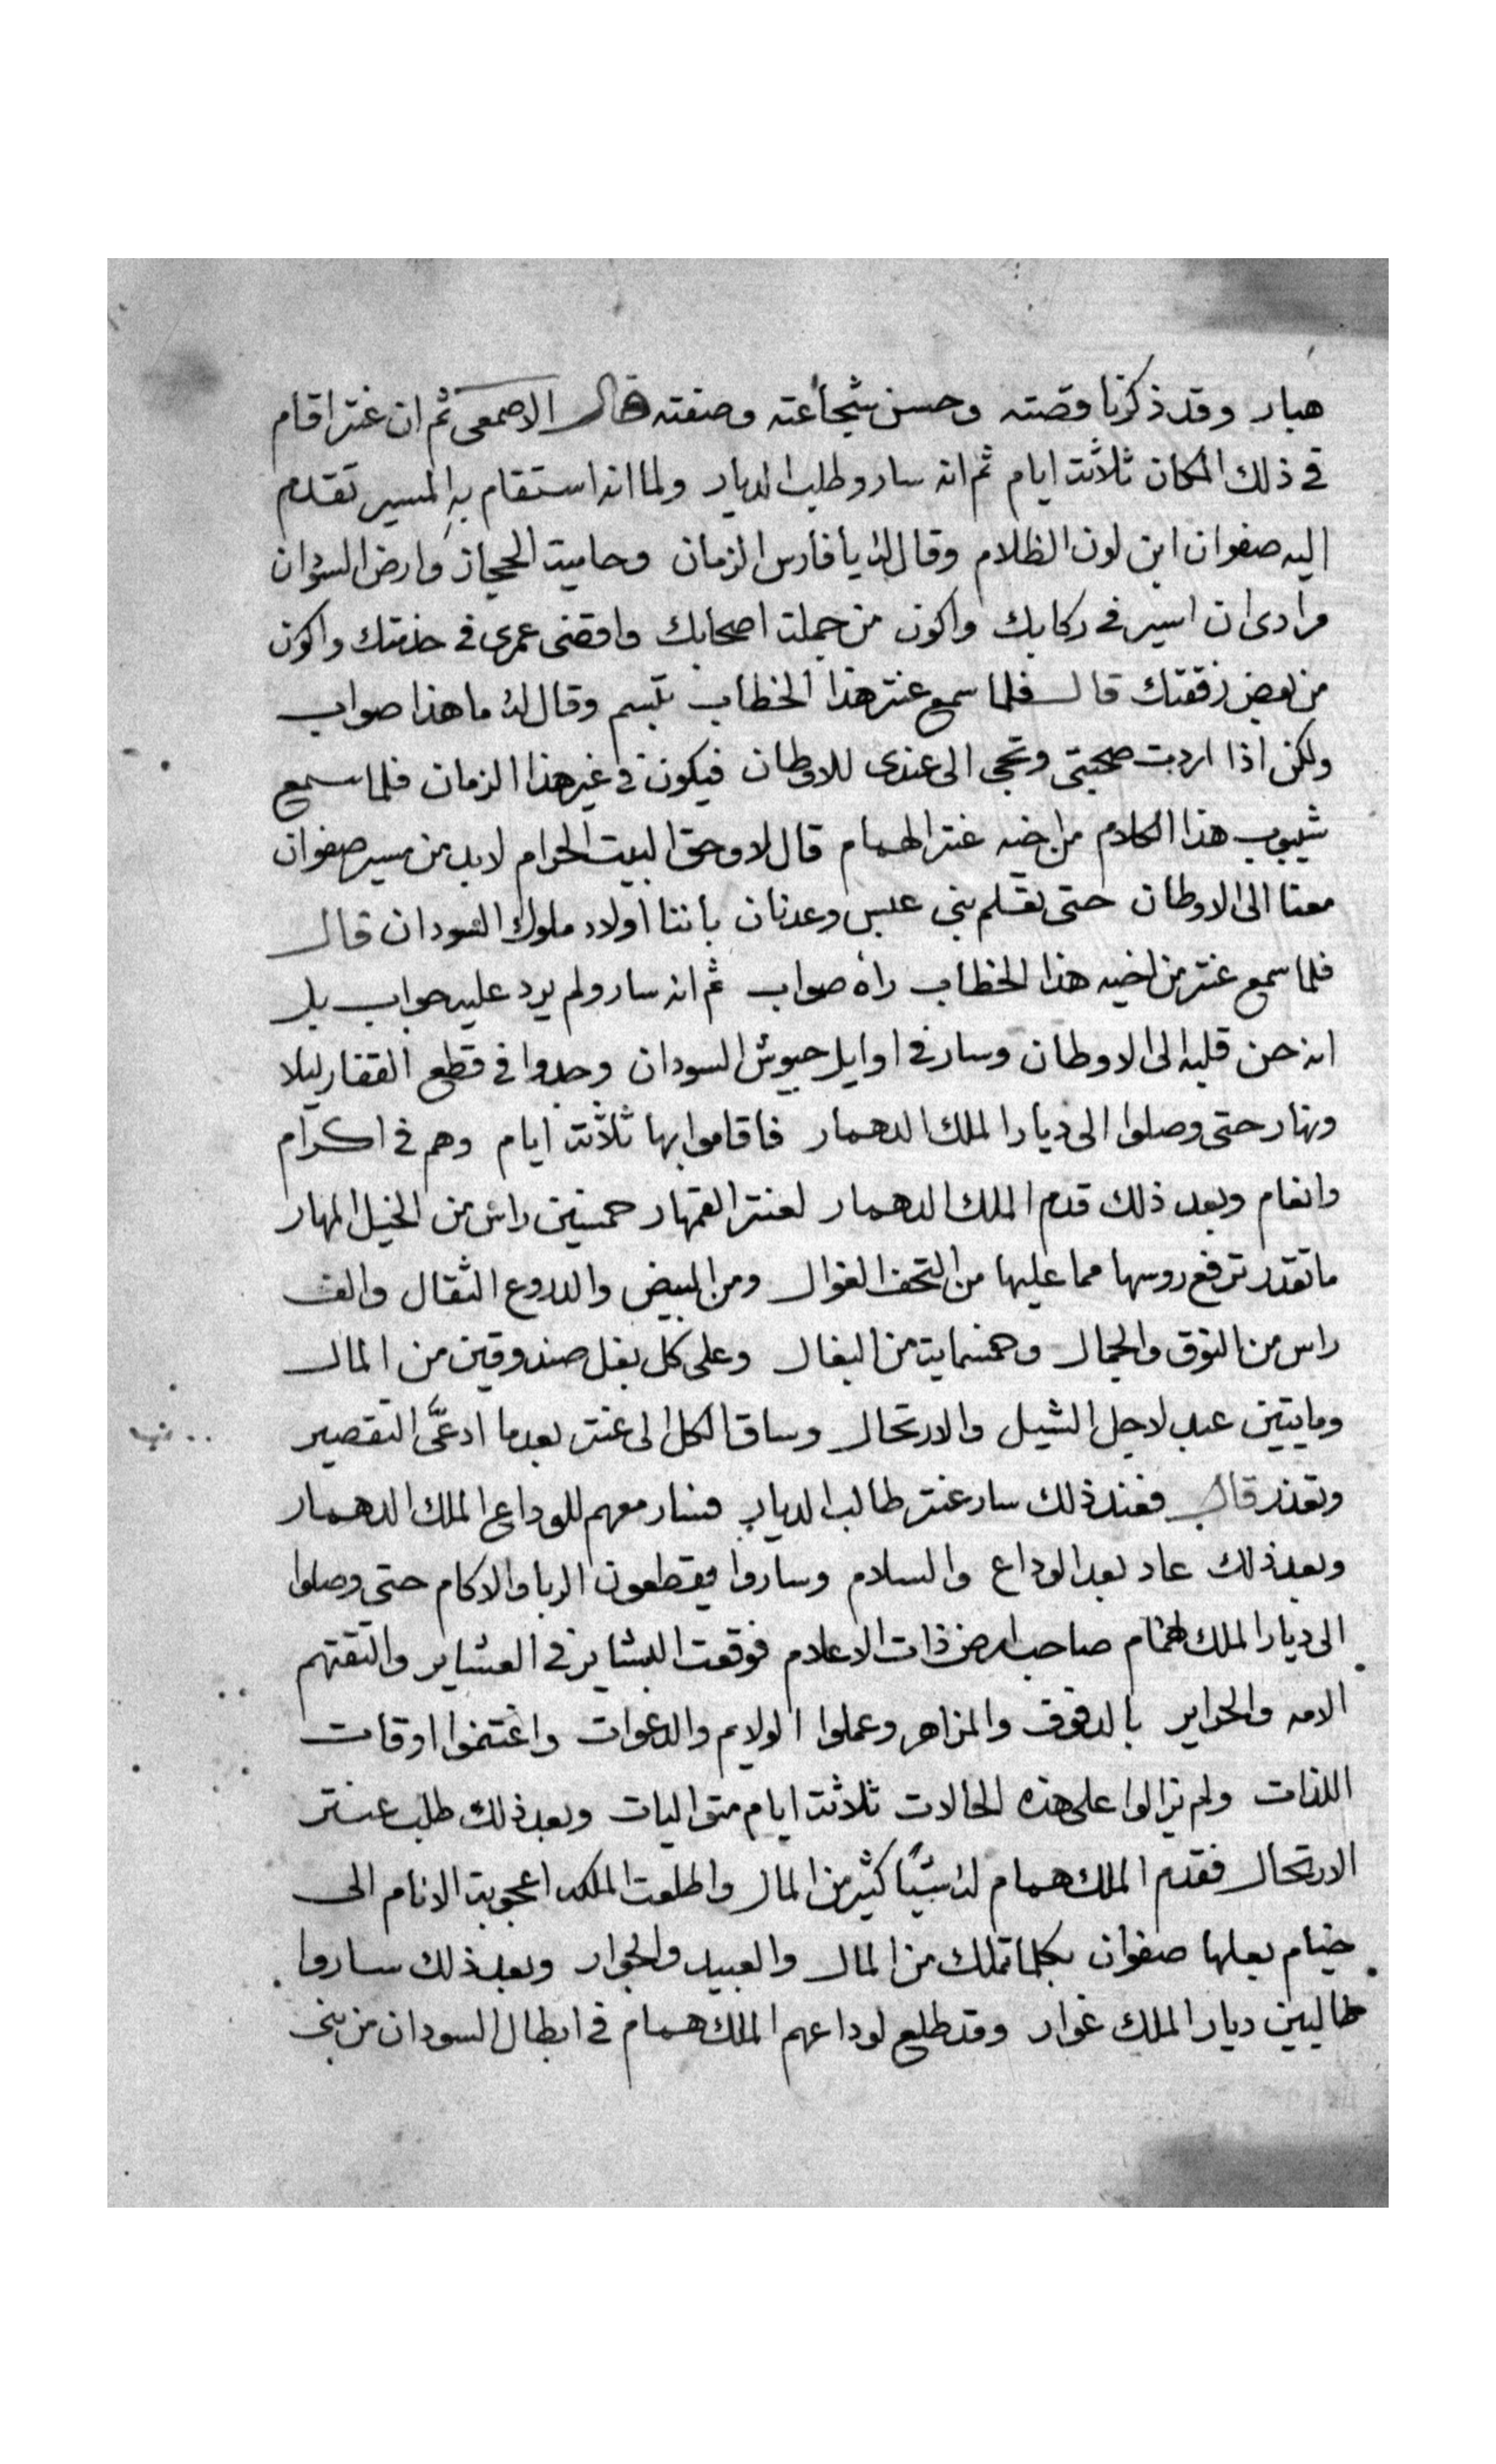 هبار وقد ذكرنا وقصته وحسن شجاعته وصفته قال الاصمعى ثم ان عنتر اقام
فى ذلك المكان ثلاثت ايام ثم انه سار وطلب الديار ولما انه استقام به المسير تقدم
اليه صفوان ابن لون الظلام وقال له يا فارس الزمان وحاميت الحجاز وارض السودان
مرادى ان اسير فى ركابك واكون من جملت اصحابك واقضى عمرى فى خدمتك واكون
من بعض رفقتك قال فلما سمع عنتر هذا الخطاب تبسم وقال له ما هذا صواب
ولكن اذا اردت صحبتى وتجى الى عندى للاوطان فيكون فى غير هذا الزمان فلما سمع
شيبوب هذا الكلام من اخيه عنتر الهمام قال لا وحق البيت الحرام لابد من مسير صفوان
معنا الى الاوطان حتى تعلم بنى عبس وعدنان باننا اولاد ملوك السودان قال
فلما سمع عنتر من اخيه هذا الخطاب راه صواب ثم انه سار ولم يرد عليه جواب بل
انه حن قلبه الى الاوطان وسار فى اوايل جيوش السودان وجدوا فى قطع القفار ليلا
ونهار حتى وصلوا الى ديار الملك الدهمار فاقاموا بها ثلاثت ايام وهم فى اكرام
وانعام وبعد ذلك قدم الملك الدهمار لعنتر القهار خمسين راس من الخيل المهار
ما تقدر ترفع روسها مما عليها من التحف الغوال ومن البيض والدروع الثقال والف
راس من النوق والجمال وخمسمايت من البغال وعلى كل بغل صندوقين من المال
ومايتين عبد لاجل الشيل والارتحال وساق الكل الى عنتر بعدما ادعّى التقصير
وتعذر قال فعند ذلك سار عنتر طالب الديار فسار معهم للوداع الملك الدهمار
وبعد ذلك عاد بعد الوداع والسلام وساروا يقطعون الربا والاكام حتى وصلوا
الى ديار الملك همام صاحب ارض ذات الاعلام فوقعت البشاير فى العشاير والتقتهم
الامه والحراير بالدفوف والمزاهر وعملوا الولايم والدعوات واغتنموا اوقات
اللذات ولم يزالوا على هذه الحالات ثلاثت ايام متواليات وبعد ذلك طلب عنتر
الارتحال فقدم الملك همام له شيًا كثير من المال واطلعت الملكه اعجوبة الانام الى
خيام بعلها صفوان بكلما تملك من المال والعبيد والجوار وبعد ذلك ساروا
طالبين ديار الملك غوار وقد طلع لوداعهم الملك همام فى ابطال السودان من بنى